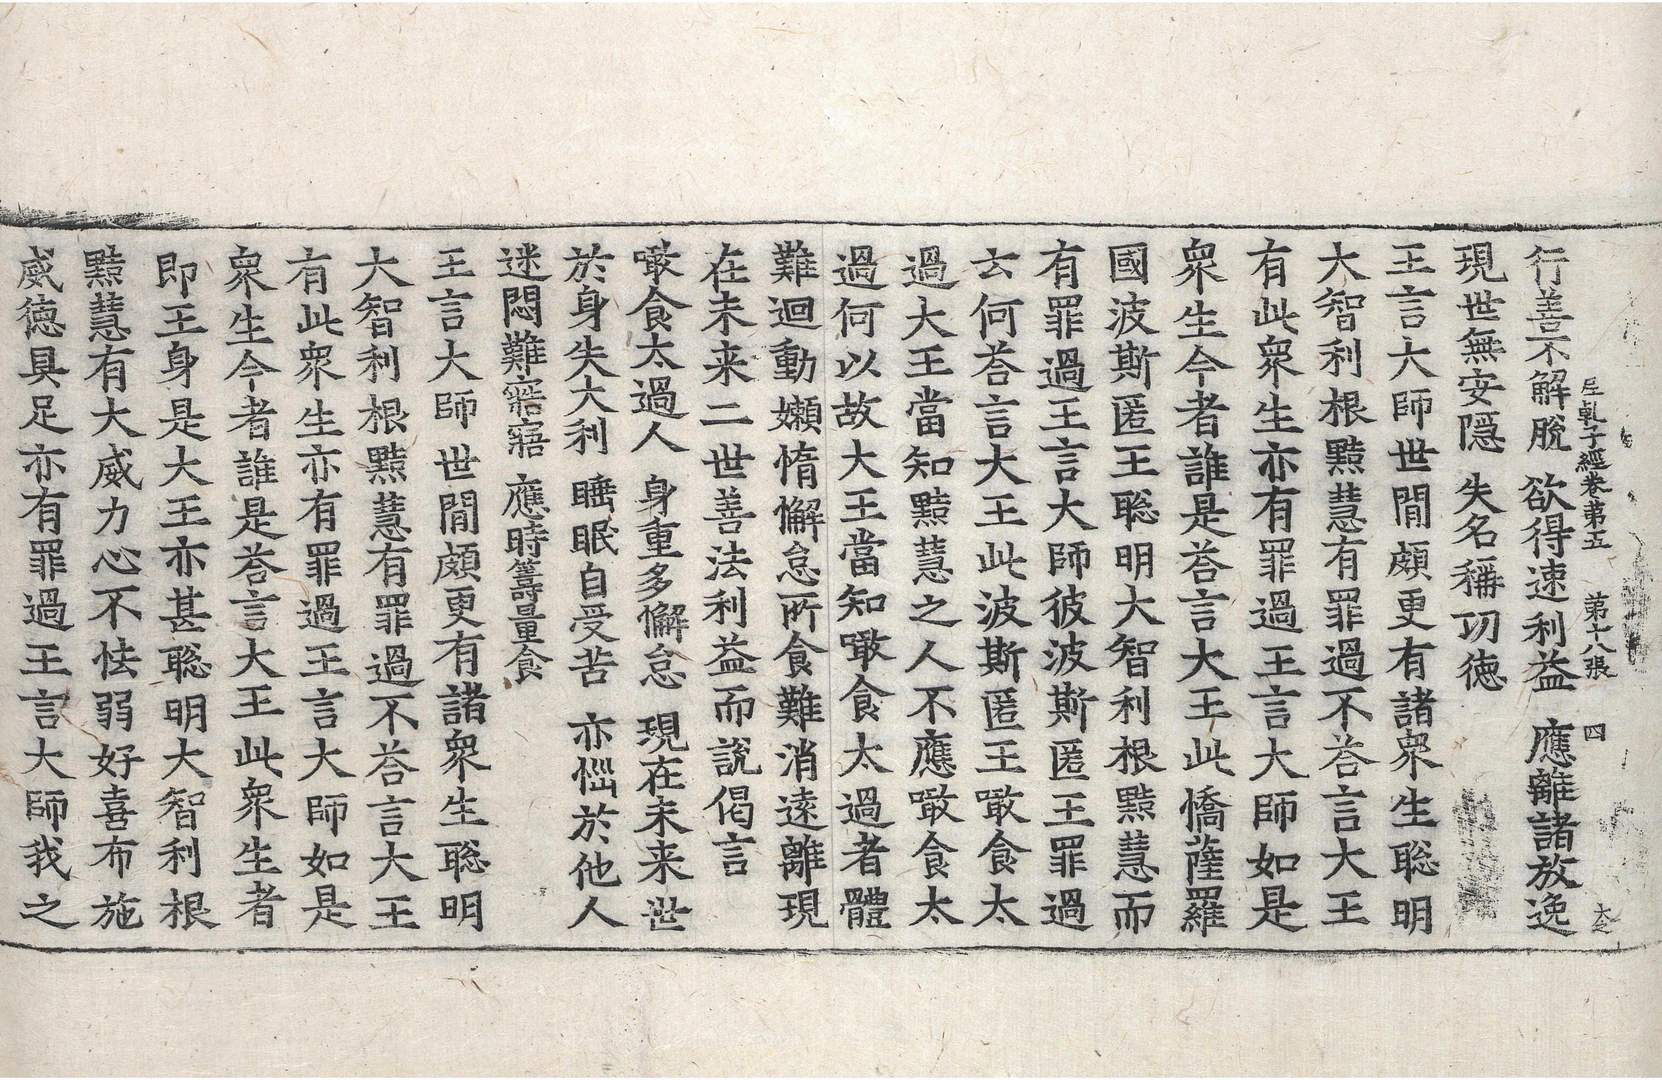 尼乹子經卷第五　第十八張　四
行善不解脫　欲得速利益　應離諸放逸
現世無安隱　失名稱功徳
王言大師世間頗更有諸衆生聡明
大智利根黠慧有罪過不荅言大王
有此衆生亦有罪過王言大師如是
衆生今者誰是荅言大王此憍薩羅
國波斯匿王聡明大智利根黠慧而
有罪過王言大師彼波斯匿王罪過
云何荅言大王此波斯匿王噉食太
過大王當知黠慧之人不應噉食太
過何以故大王當知噉食太過者體
難迴動嬾惰懈怠所食難消遠離現
在未来二世善法利益而說偈言
噉食太過人　身重多懈怠　現在未来世
於身失大利　睡眠自受苦　亦惱於他人
迷悶難寤寤　應時籌量食
王言大師世間頗更有諸衆生聡明
大智利根黠慧有罪過不荅言大王
有此衆生亦有罪過王言大師如是
衆生今者誰是荅言大王此衆生者
即王身是大王亦甚聡明大智利根
黠慧有大威力心不怯弱好喜布施
威徳具足亦有罪過王言大師我之